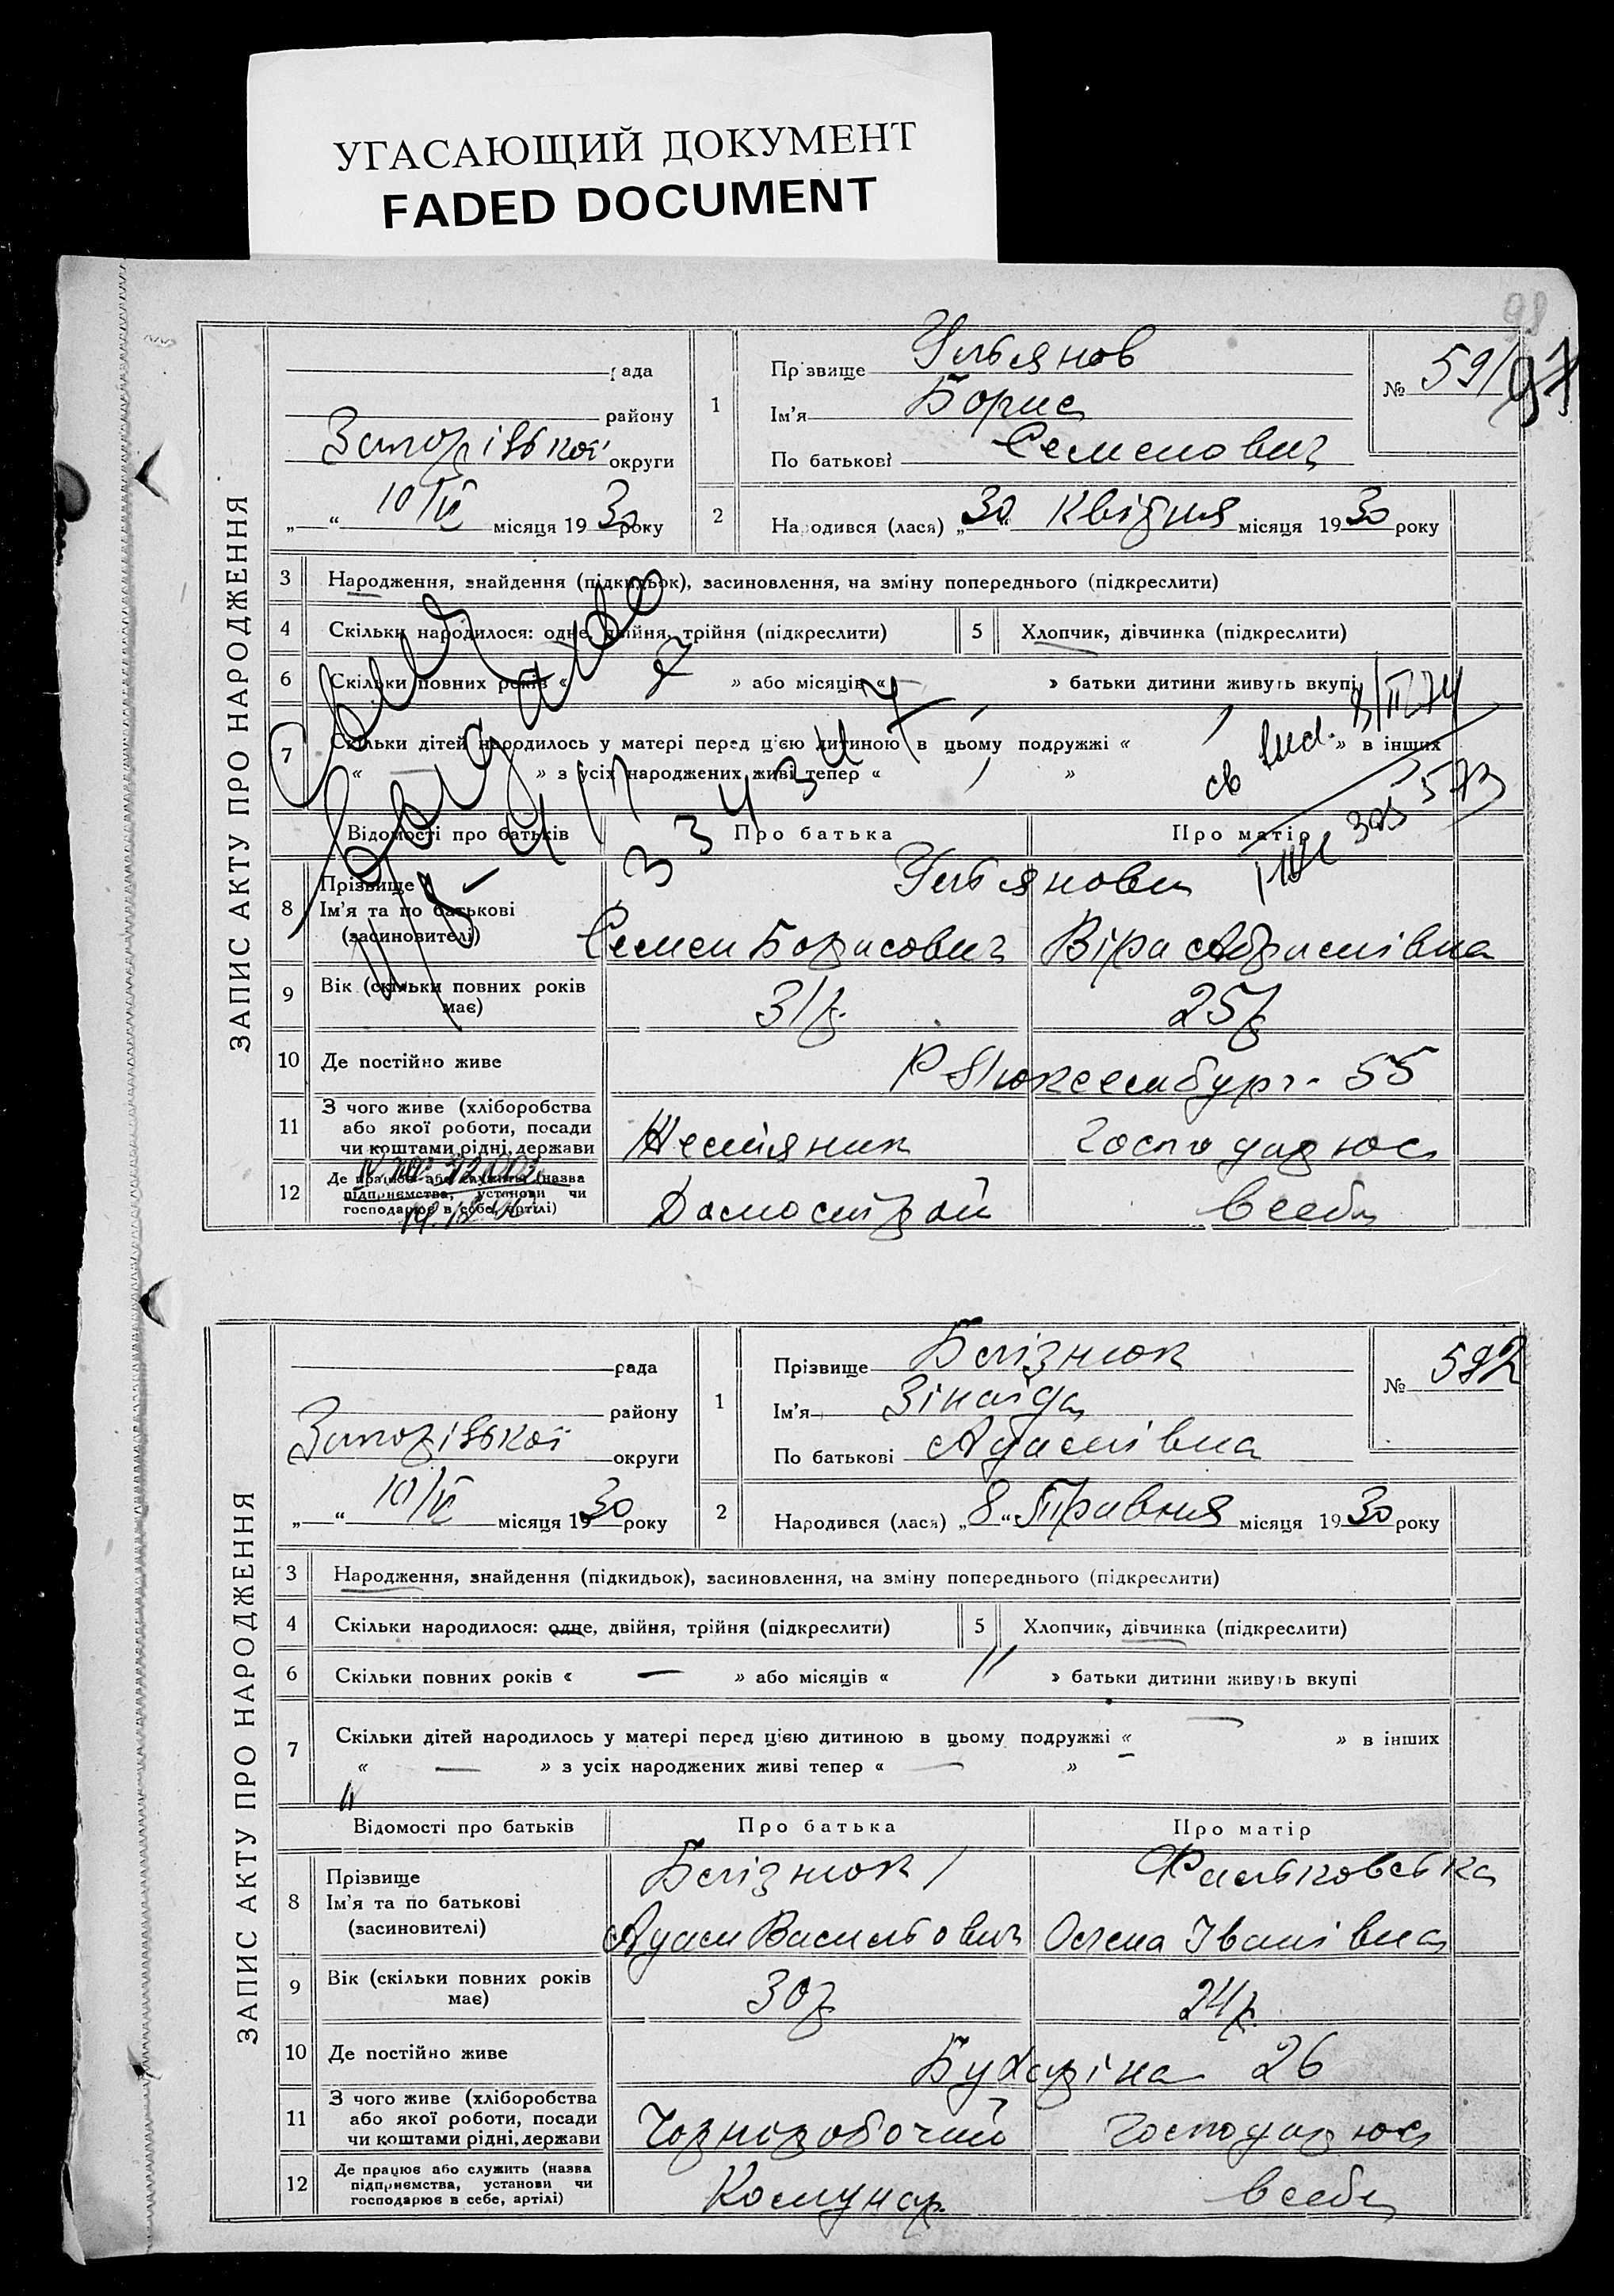 УГАСАЮЩИЙ ДОКУМЕНТ
FADED DOCUMENT
98
97
ЗАПИС АКТУ ПРО НАРОДЖЕННЯ
рада
району
Запорізької округи
„ “ 10/VI місяця 1930 року
1
Прізвище Ульянов
Ім'я Борис
По батькові Семенович
№ 591
2
Народився (лася) „30“ Квітня місяця 1930 року
3 Народження, знайдення (підкидьок), засиновлення, на зміну попереднього (підкреслити)
4 Скільки народилося: одне, двійня, трійня (підкреслити)
5 Хлопчик, дівчинка (підкреслити)
6 Скільки повних років « 7 » або місяців « — » батьки дитини живуть вкупі
7 Скільки дітей народилось у матері перед цією дитиною в цьому подружжі « » в інших
« — » з усіх народжених живі тепер « »
Відомості про батьків Про батька Про матір
8 Прізвище
Ім'я та по батькові
(засиновителі)
Ульянови
Семен Борисович Віра Абрамівна
9 Вік (скільки повних років має) 31 р. 25 р.
10 Де постійно живе Р Люксембург. 55
11 З чого живе (хліборобства
або якої роботи, посади
чи коштами рідні, держави
Жестяник Господарює
12 Де працює або служить (назва
підприємства, установи чи
господарює в себе, артілі)
Домострой в себе
ЗАПИС АКТУ ПРО НАРОДЖЕННЯ
рада
району
Запорізької округи
„ “ 10/VI місяця 1930 року
1
Прізвище Белізнюк
Ім'я Зінаїда
По батькові Адамівна
№ 592
2
Народився (лася) „8“ Травня місяця 1930 року
3 Народження, знайдення (підкидьок), засиновлення, на зміну попереднього (підкреслити)
4 Скільки народилося: одне, двійня, трійня (підкреслити)
5 Хлопчик, дівчинка (підкреслити)
6 Скільки повних років « — » або місяців « 11 » батьки дитини живуть вкупі
7 Скільки дітей народилось у матері перед цією дитиною в цьому подружжі « — » в інших
« — » з усіх народжених живі тепер « — »
Відомості про батьків Про батька Про матір
8 Прізвище
Ім'я та по батькові
(засиновителі)
Белізнюк Фальковська
Адам Васильович Олена Іванівна
9 Вік (скільки повних років має) 30 р 24 р.
10 Де постійно живе Бухаріна 26
11 З чого живе (хліборобства
або якої роботи, посади
чи коштами рідні, держави
Чорноробочий Господарює
12 Де працює або служить (назва
підприємства, установи чи
господарює в себе, артілі)
Комунар. в себе